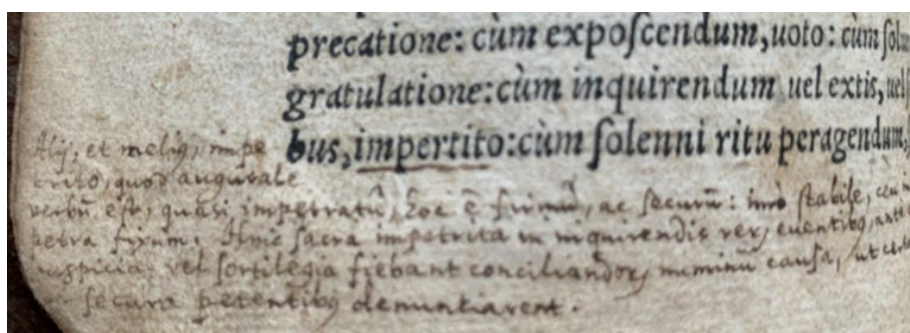 precatione: cùm exposcendum, uoto: cùm ſolu
gratulatione: cùm inquirendum uel extis, uel ſ
bus, impertito: cùm ſolenni ritu peragendum,
Alij, et meliq, impe
trito, quod augurale
verbū eſt, quasi impetratū, hoc ē firmū, ac ſecurū: imò ſtabile, ceu in
petra fixum. Hinc ſacra impetrita in inquirendis rerȝ eventibꝫ, ante
auspicia vel ſortilegia fiebant conciliandorȝ numinū cauſa, ut
ſecura petentibꝫ denuntiarent.